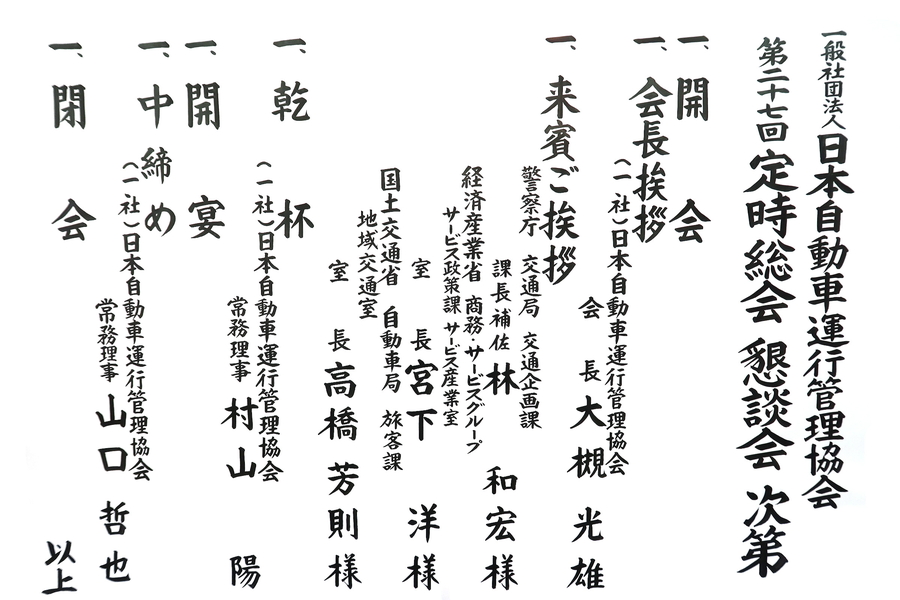 一般社団法人日本自動車運行管理協会
第二十七回 定時総会 懇談会 次第
一、開 会
一、会長挨拶
(一社)日本自動車運行管理協会
会 長 大槻 光雄
一、来賓ご挨拶
警察庁 交通局 交通企画課
課長補佐 林 和宏様
経済産業省 商務・サービスグループ
サービス政策課 サービス産業室
室 長 宮下 洋様
国土交通省 自動車局 旅客課
地域交通室
室 長 高橋 芳則様
一、乾 杯
(一社)日本自動車運行管理協会
常務理事 村山 陽
一、開 宴
一、中締め
(一社)日本自動車運行管理協会
常務理事 山口 哲也
一、閉 会
以上